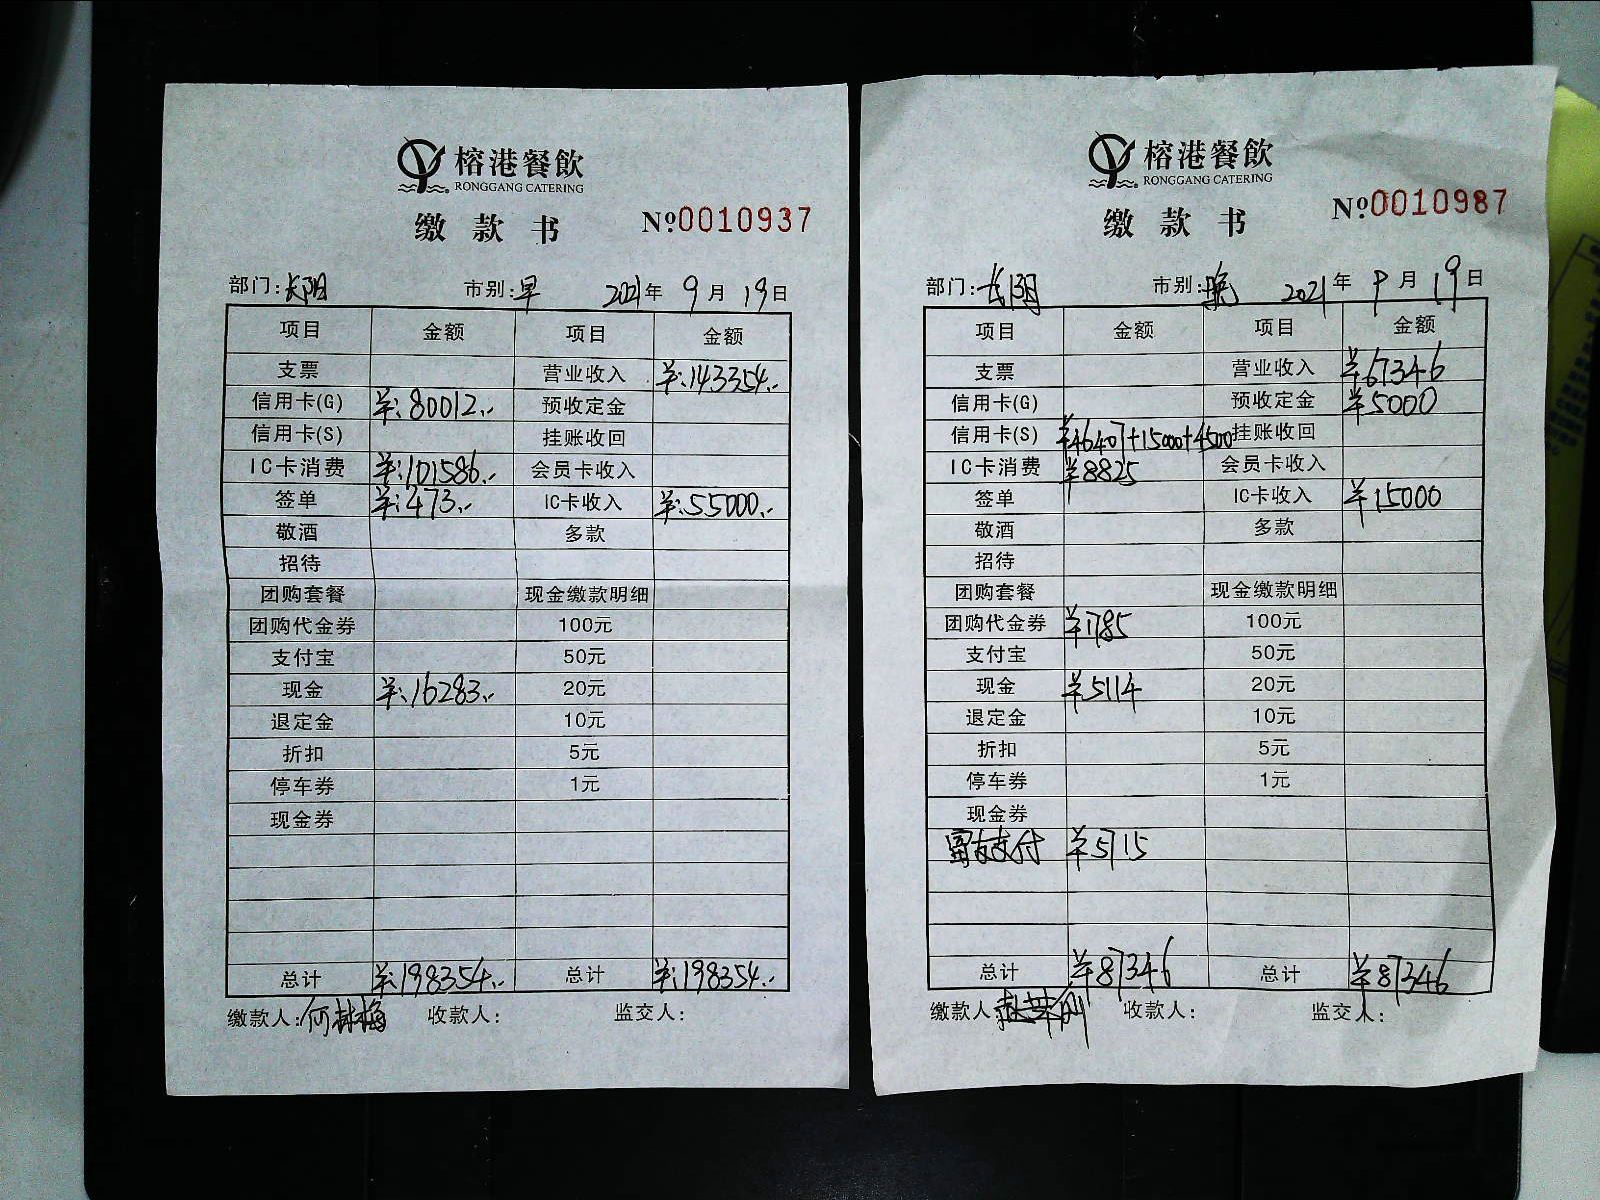 榕港餐飲
RONGGANG CATERING
缴款书 №0010937
部门:长阳 市别:早 2021年9月19日
项目 金额 项目 金额
支票 营业收入 ¥:143354..
信用卡(G) ¥:80012.. 预收定金
信用卡(S) 挂账收回
IC卡消费 ¥:101586.. 会员卡收入
签单 ¥:473.. IC卡收入 ¥:55000..
敬酒 多款
招待
团购套餐 现金缴款明细
团购代金券 100元
支付宝 50元
现金 ¥:16283.. 20元
退定金 10元
折扣 5元
停车券 1元
现金券
总计 ¥:198354.. 总计 ¥:198354..
缴款人:何林梅 收款人: 监交人:
榕港餐飲
RONGGANG CATERING
缴款书 №0010987
部门:长阳 市别:晚 2021年9月19日
项目 金额 项目 金额
支票 营业收入 ¥67346
信用卡(G) 预收定金 ¥5000
信用卡(S) ¥46407+15000+4500 挂账收回
IC卡消费 ¥8825 会员卡收入
签单 IC卡收入 ¥15000
敬酒 多款
招待
团购套餐 现金缴款明细
团购代金券 ¥1785 100元
支付宝 50元
现金 ¥5114 20元
退定金 10元
折扣 5元
停车券 1元
现金券
富友支付 ¥5715
总计 ¥87346 总计 ¥87346
缴款人: 收款人: 监交人: